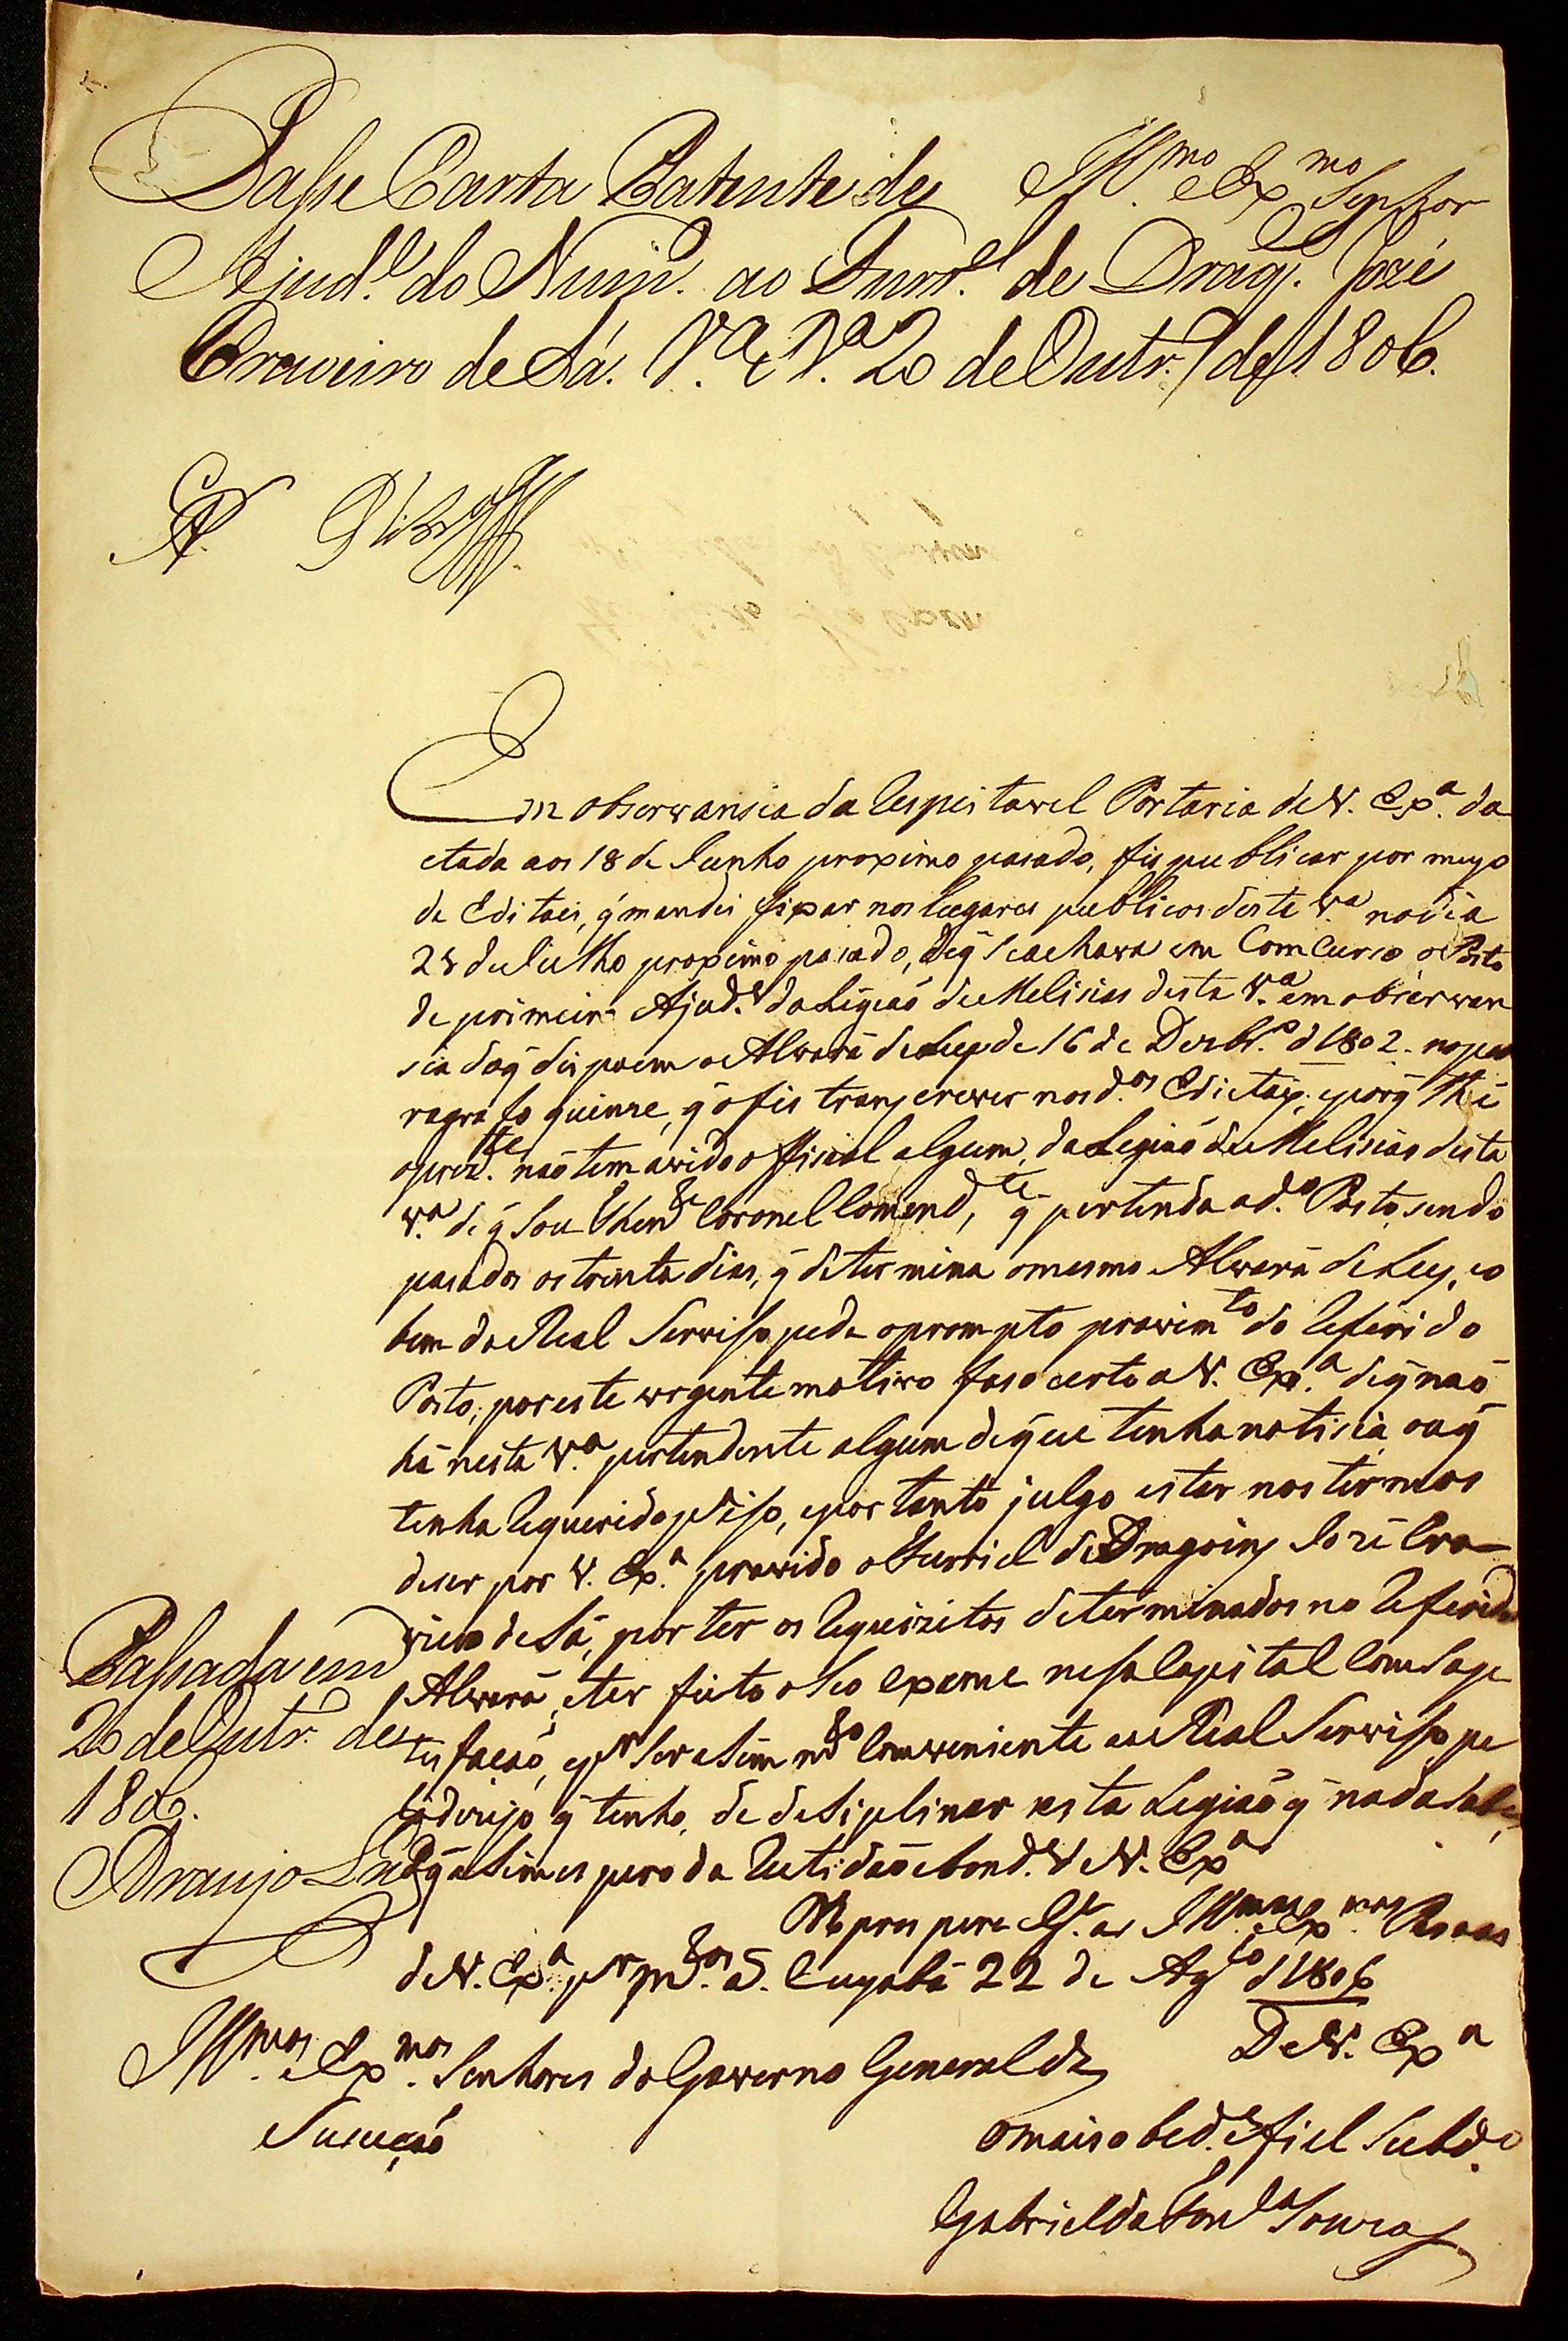 Passe Carta Patente de
Ill.mo e Ex.mo Senhor
Ajud.e do Num.o ao Furr.el de Drag. José
Craveiro de Sá. V.a 20 de Outr.o de 1806.
Em observansia da Respeitavel Portaria de V. Ex.a da
etada aos 18 de Junho proximo pasado, fis publicar por meyo
de Editais, q̃ mandei fixar nos lugares publicos desta V.a no dia
28 de Julho proximo pasado, de q̃ se achava em Comcurso o Posto
de primeiro Ajud.e da Legiaõ de Melisias desta V.a em obserwan
sia do q̃ dis poem o Alvará de Ley de 16 de Dezbr.o d 1802. no pa
ragrafo quinze, q̃ o fis tranzcrever nos d.os Edictaiz; e porq̃ thé
o prez.te naõ tem avido offisial algum, da Legiaõ de Melisias desta
V.a de q̃ sou Then.e Coronel Comend.te q̃ pertenda o d.o Posto, sendo
pasados os trinta dias, q̃ determina o mesmo Alvará de Ley, e o
bem do Real Servisso pede o prompto provim.to do Referido
Posto; por este urgente motivo faso certo a V. Ex.a de q̃ naõ
há nesta V.a pertendente algum de que tenha notisia, ou q̃
tenha Requerido p.a iso, e por tanto julgo estar nos termos
de ser por V. Ex.a provido o Furriel de Dragoinz Jozé Cra-
vieiro de Sá, por ter os Requizitos determinados no Referido
Alvará, e ter feito o seo exame nesa Capital com Sape
tis facaõ, e p.r ser asim m.to comveniente ao Real Servisso pe
lo dezejo q̃ tenho, de desiplinar esta Legiaõ q̃ nada sabe,
o q̃ asim espero da Retidaõ e bond.e de V. Ex.a
D.s prospere e G.e as Ill.mas e Ex.mas Pesoas
de V. Ex.a p.r m.tos a.s Cuyabá 22 de Ag.to d 1806
De V. Ex.a
Ill.mos e Ex.mos Senhores do Governo General da
Sucuçaõ
o mais obed.e e fiel Subd.o
Gabriel da Fon.ca Souza
Passada em
20 de Outr.o de
1806.
Araujo